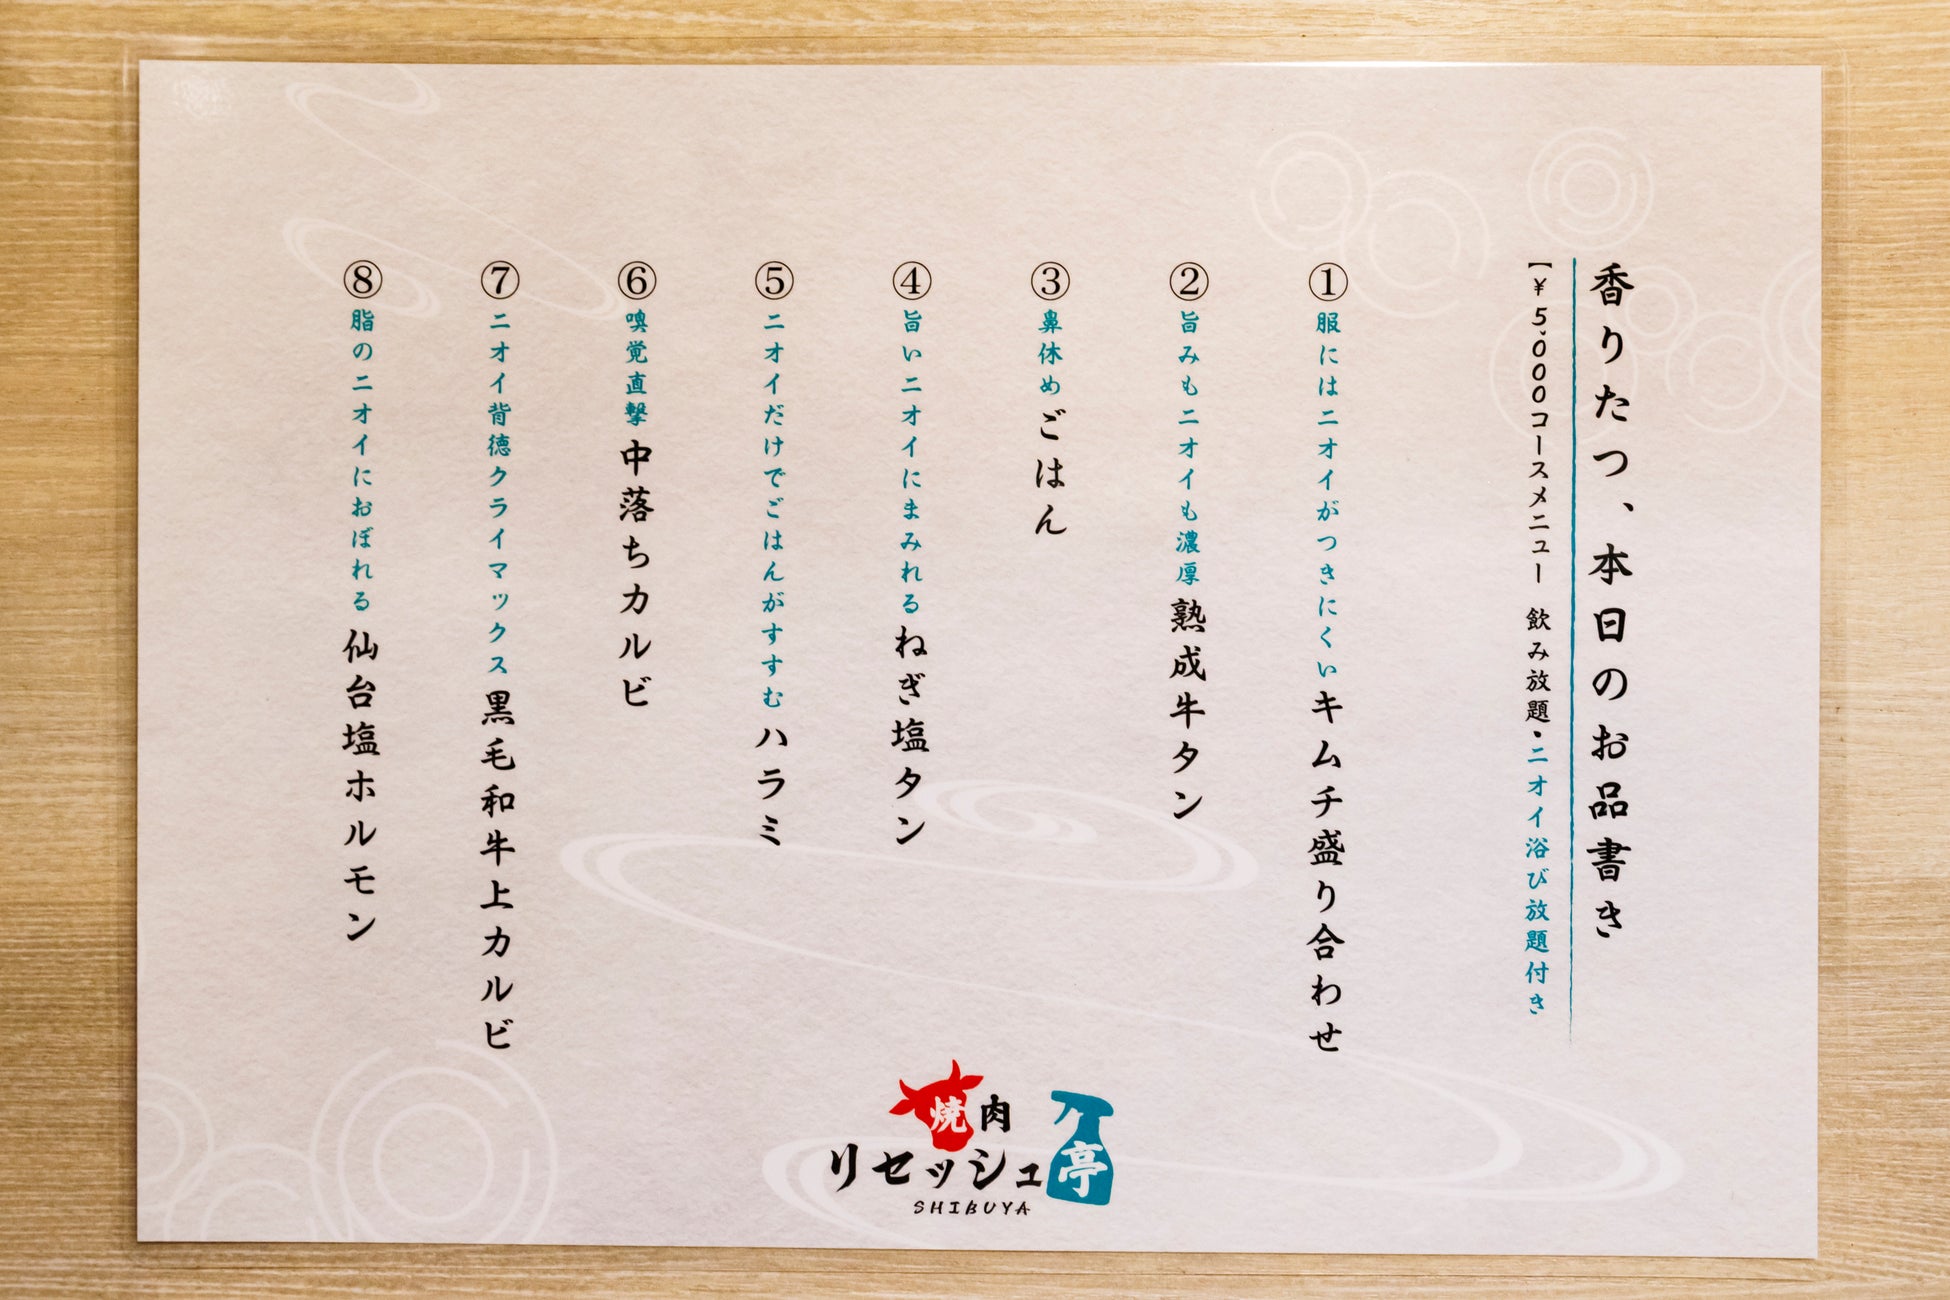 香りたつ、本日のお品書き
【¥5,000コースメニュー 飲み放題・ニオイ浴び放題付き
① 服にはニオイがつきにくい キムチ盛り合わせ
② 旨みもニオイも濃厚 熟成牛タン
③ 鼻休め ごはん
④ 旨いニオイにまみれる ねぎ塩タン
⑤ ニオイだけでごはんがすすむ ハラミ
⑥ 嗅覚直撃 中落ちカルビ
⑦ ニオイ背徳クライマックス 黒毛和牛上カルビ
⑧ 脂のニオイにおぼれる 仙台塩ホルモン
焼肉
リセッシュ亭
SHIBUYA